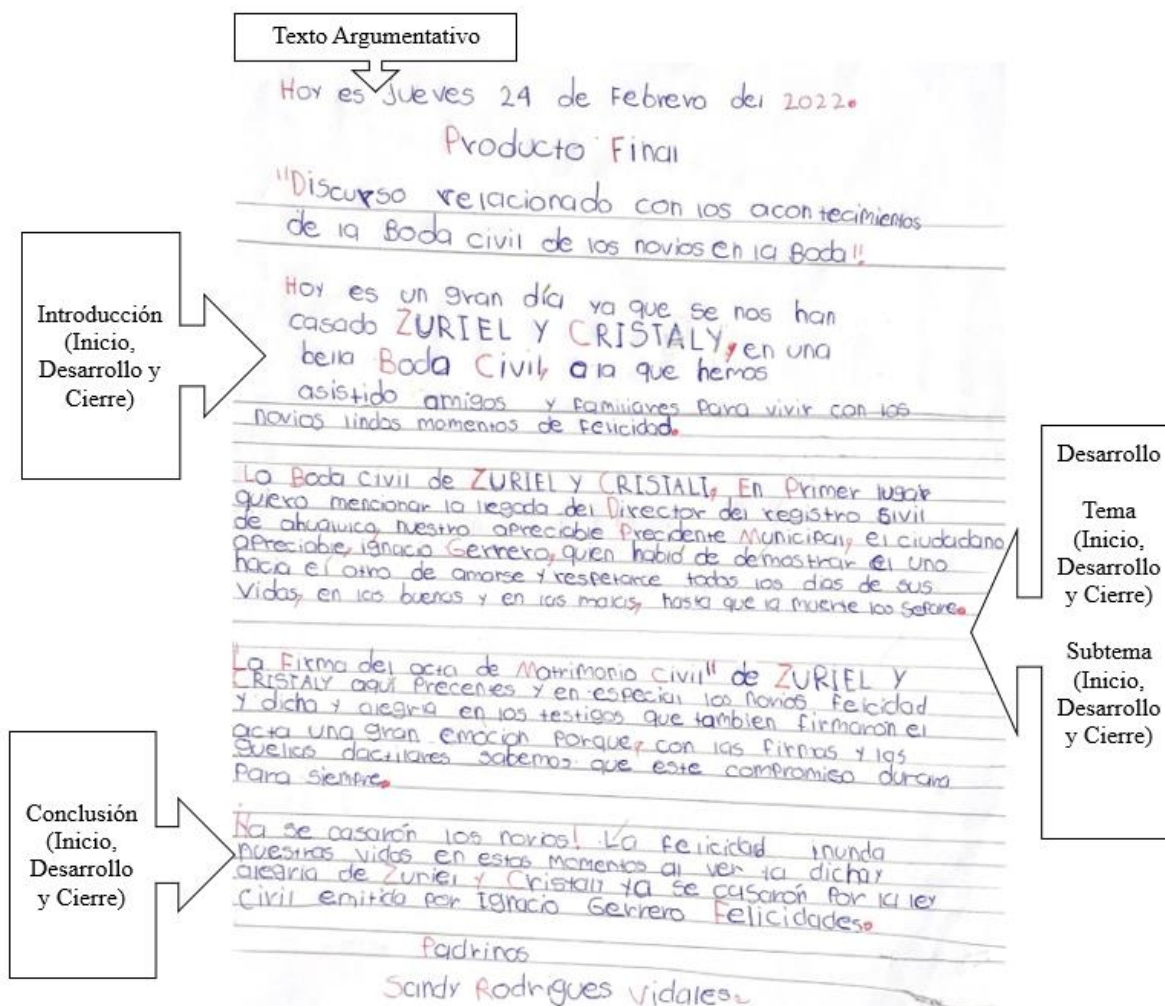 Texto Argumentativo
Hoy es Jueves 24 de Febrero del 2022.
Producto Final
"Discurso relacionado con los acontecimientos
de la Boda civil de los novios en la Boda"
Introducción
(Inicio,
Desarrollo y
Cierre)
Hoy es un gran día ya que se nos han
casado ZURIEL Y CRISTALY, en una
bella Boda Civil, a la que hemos
asistido amigos y familiares Para vivir con los
novios lindos momentos de felicidad.
La Boda Civil de ZURIEL Y CRISTALI, En Primer lugar
quiero mencionar la llegada del Director del registro Sivil
de ahualulco, nuestro apreciable Precidente Municipal, el ciudadano
apreciable, ignacio Gerrero, quien habló de demostrar el uno
hacia el otro de amarse y respetarce todos los dias de sus
Vidas, en las buenas y en las malas, hasta que la muerte los separe.
Desarrollo
Tema
(Inicio,
Desarrollo
y Cierre)
Subtema
(Inicio,
Desarrollo
y Cierre)
"La Firma del acta de Matrimonio Civil" de ZURIEL Y
CRISTALY aquí Precenes y en especial los novios felicidad
y dicha y alegria en los testigos que tambien firmaron el
acta una gran emoción porque, con las firmas y las
guellas dactilares sabemos que este compromiso durara
Para siempre.
Conclusión
(Inicio,
Desarrollo
y Cierre)
Ya se casarón los novios! La felicidad inunda
nuestras vidas en estos momentos al ver la dicha y
alegria de Zuriel y Cristali ya se casarón Por la ley
Civil emitida por Ignacio Gerrero Felicidades.
Padrinos
Sandy Rodrigues Vidales.